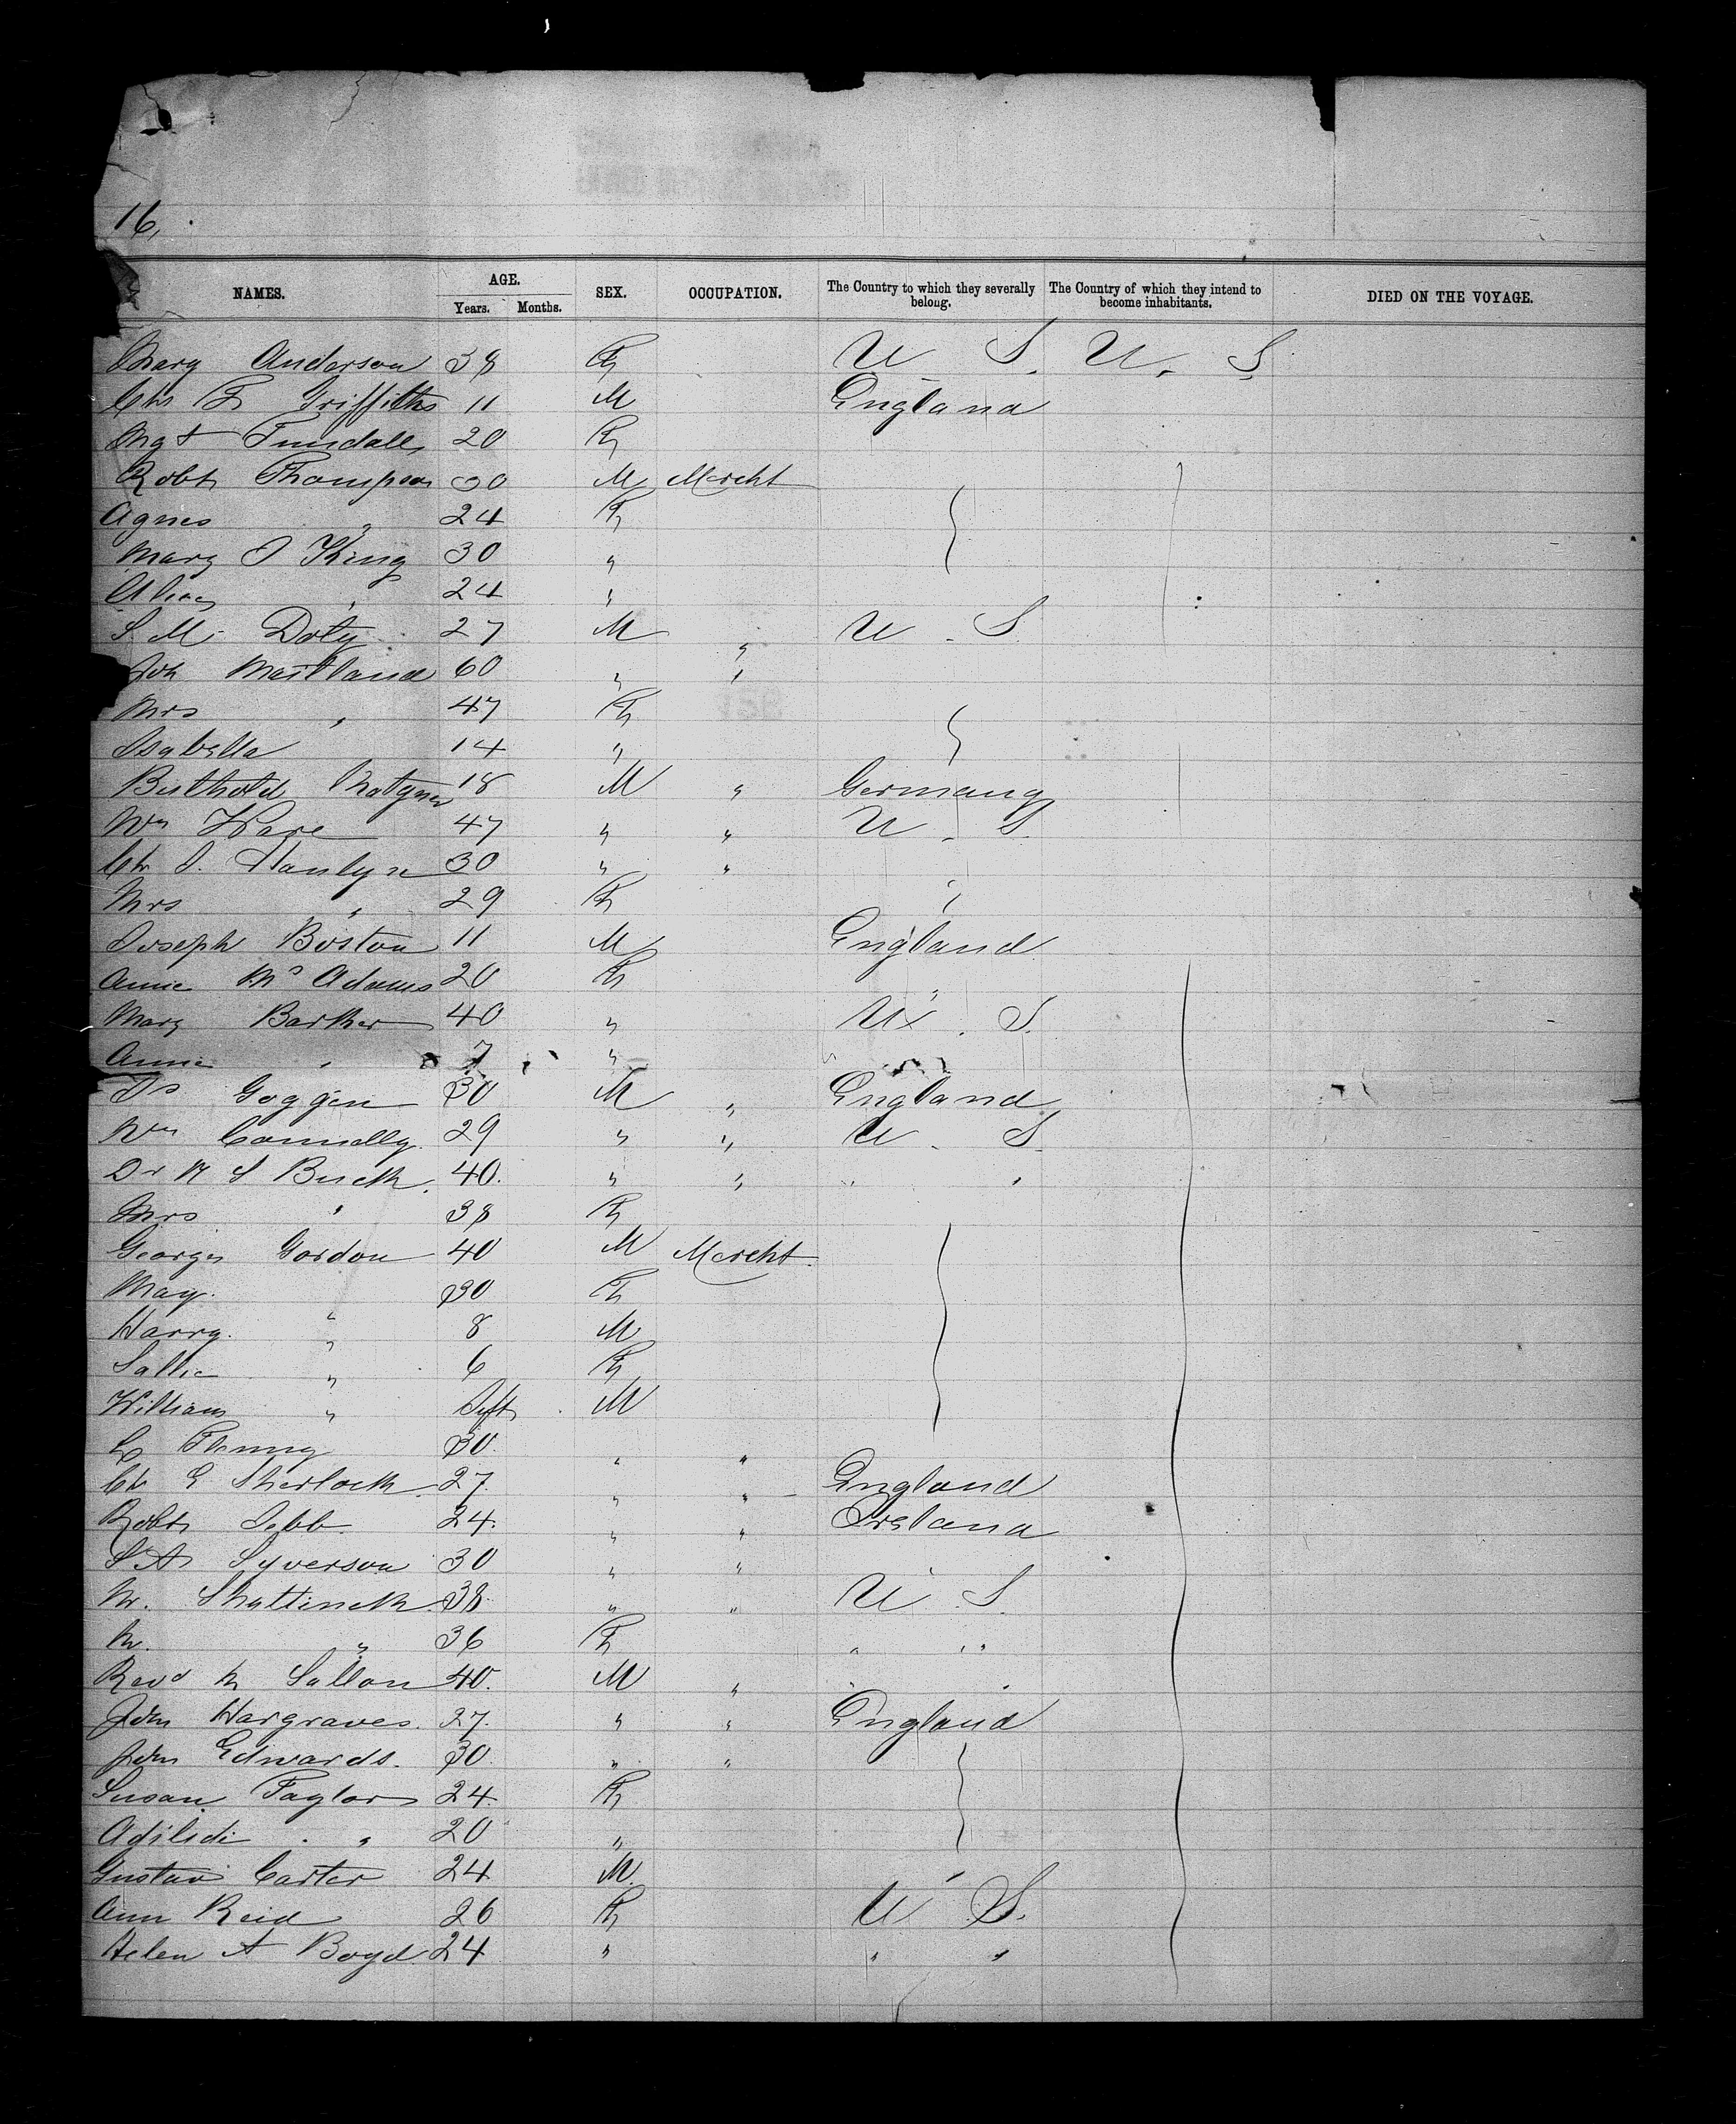 16,
NAMES. AGE. Years. Months. SEX. OCCUPATION. The Country to which they severally belong. The Country of which they intend to become inhabitants. DIED ON THE VOYAGE.
Mary Anderson 38 F U. S. U. S.
Chs F Griffiths 11 M England
Mgt 20 F
Robt Thompson 30 M Mercht
Agnes " 24 F
Mary J King 30 "
Alice " 24 "
S. M. Doty 27 M " U. S.
Jon Maitland 60 " "
Mrs " 47 F
Isabella 14 "
Berthold 18 M " Germany
Wm Ware 47 " " U. S.
Ch J. Hanlyn 30 " "
Mrs " 29 F "
Joseph Boston 11 M England
Annie Mc Adams 20 F "
Mary Barker 40 " U. S.
Annie " 7 "
Js Goggin 30 M " England
Wm Connelly 29 " " U. S.
Dr N S Buck 40. " " " "
Mrs " 38 F
George Gordon 40 M Mercht
May. " 30 F
Harry. " 8 M
Sallie " 6 F
William " Inft M
L Fleming 30. " "
Ch E Sherlock. 27. " " England
Robt Jebb. 24. " " Ireland
S A Syverson 30 " "
Mr. Shattuck 38 " " U. S.
M. " 36 F " "
Revd M Sallon 40. M " " "
Jom Hargraves. 27. " " England
Jom Edwards. 30. " "
Susan Taylor 24. F
" 20 "
Gustav Carter 24 M. "
Ann Reid 26 F U. S.
Helen A Boyd 24 " " "